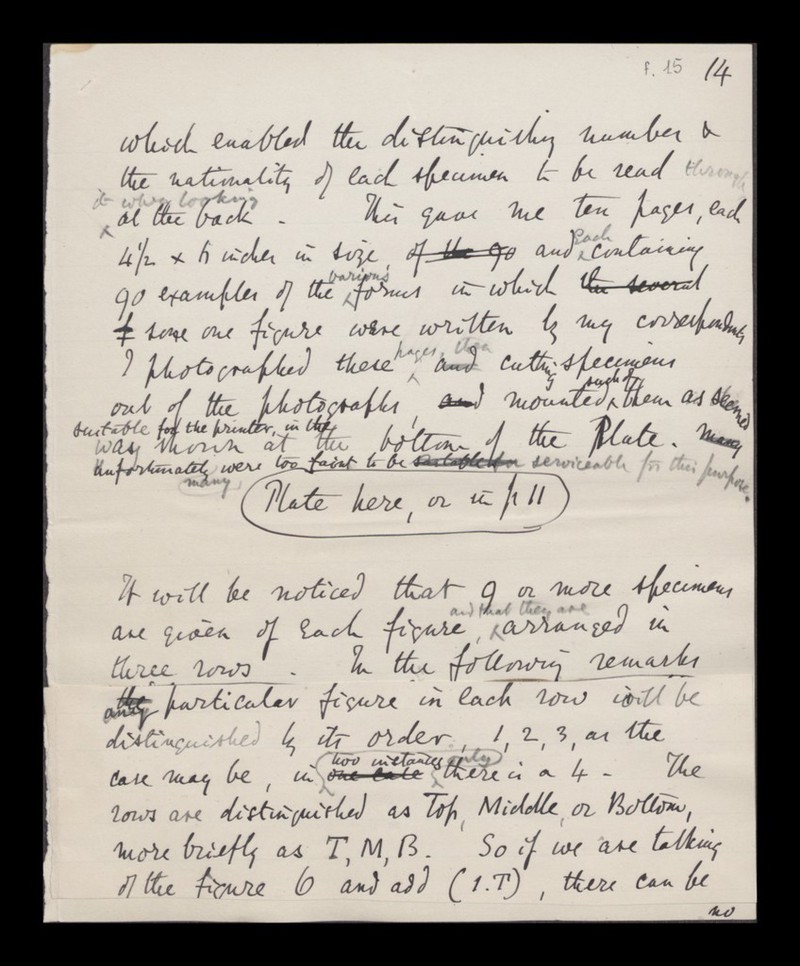 f. 15 14
which enabled the distinguishing number &
the nationality of each specimen to be read through
it when looking
at the back. This gave me ten pages, each
each
4½ × 6 inches in size of the 90 and containing
various
90 examples of the forms in which the several
some one figure were written by my correspondents
pages, then
I photographed these and cutting specimens
such of
out of the photographs, and mounted them as seemed
suitable for the printer, in the
was shown at the bottom of the Plate. Many
unfortunately were too faint to be suitable for serviceable for this purpose.
many
Plate here, or in p 11
It will be noticed that 9 or more specimens
and that they are
are given of each figure, arranged in
three rows. In the following remarks
the any particular figure in each row will be
distinguished by its order, 1, 2, 3, as the
two instances only
case may be, in one case there is a 4 – The
rows are distinguished as Top, Middle, or Bottom,
more briefly as T, M, B. So if we are talking
of the figure 6 and add (1.T), there can be
no